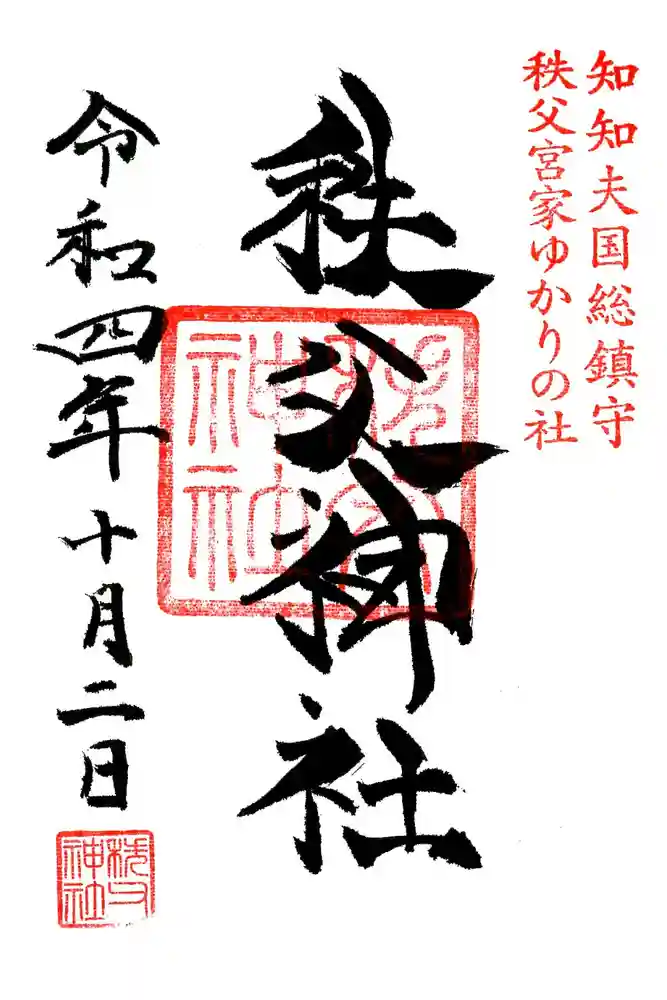 知知夫国総鎮守
秩父宮家ゆかりの社
秩父神社
秩父神社
令和四年十月二日
秩父神社